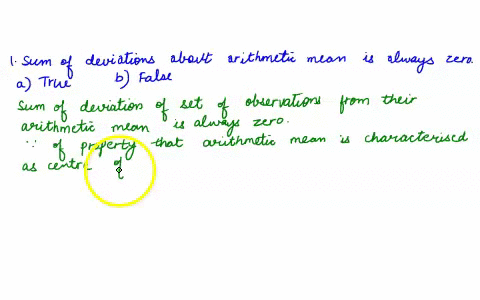 1. Sum of deviations about arithmetic mean is always zero.
a) True b) False
Sum of deviation of set of observations from their
arithmetic mean is always zero.
∵ of property that arithmetic mean is characterised
as centre of